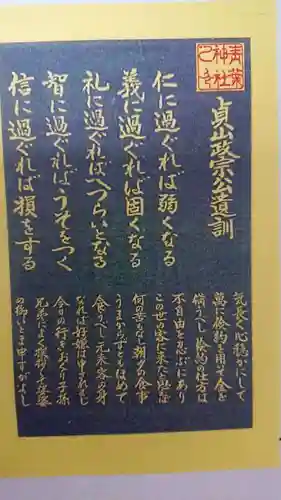 青葉神社之印
貞山政宗公遺訓
仁に過ぐれば弱くなる
義に過ぐれば固くなる
礼に過ぐればへつらいとなる
智に過ぐればうそをつく
信に過ぐれば損をする
気長く心穏かにして
萬に倹約を用て金を
備うべし倹約の仕方は
不自由を忍ぶにあり
この世の客に来たと思えば
何の苦もなし朝夕の食事
うまからずともほめて
食うべし元来客の身
なれば好嫌は申されまじ
今日の行をおくり子孫
兄弟によく挨拶をして娑婆
の御いとま申すがよし